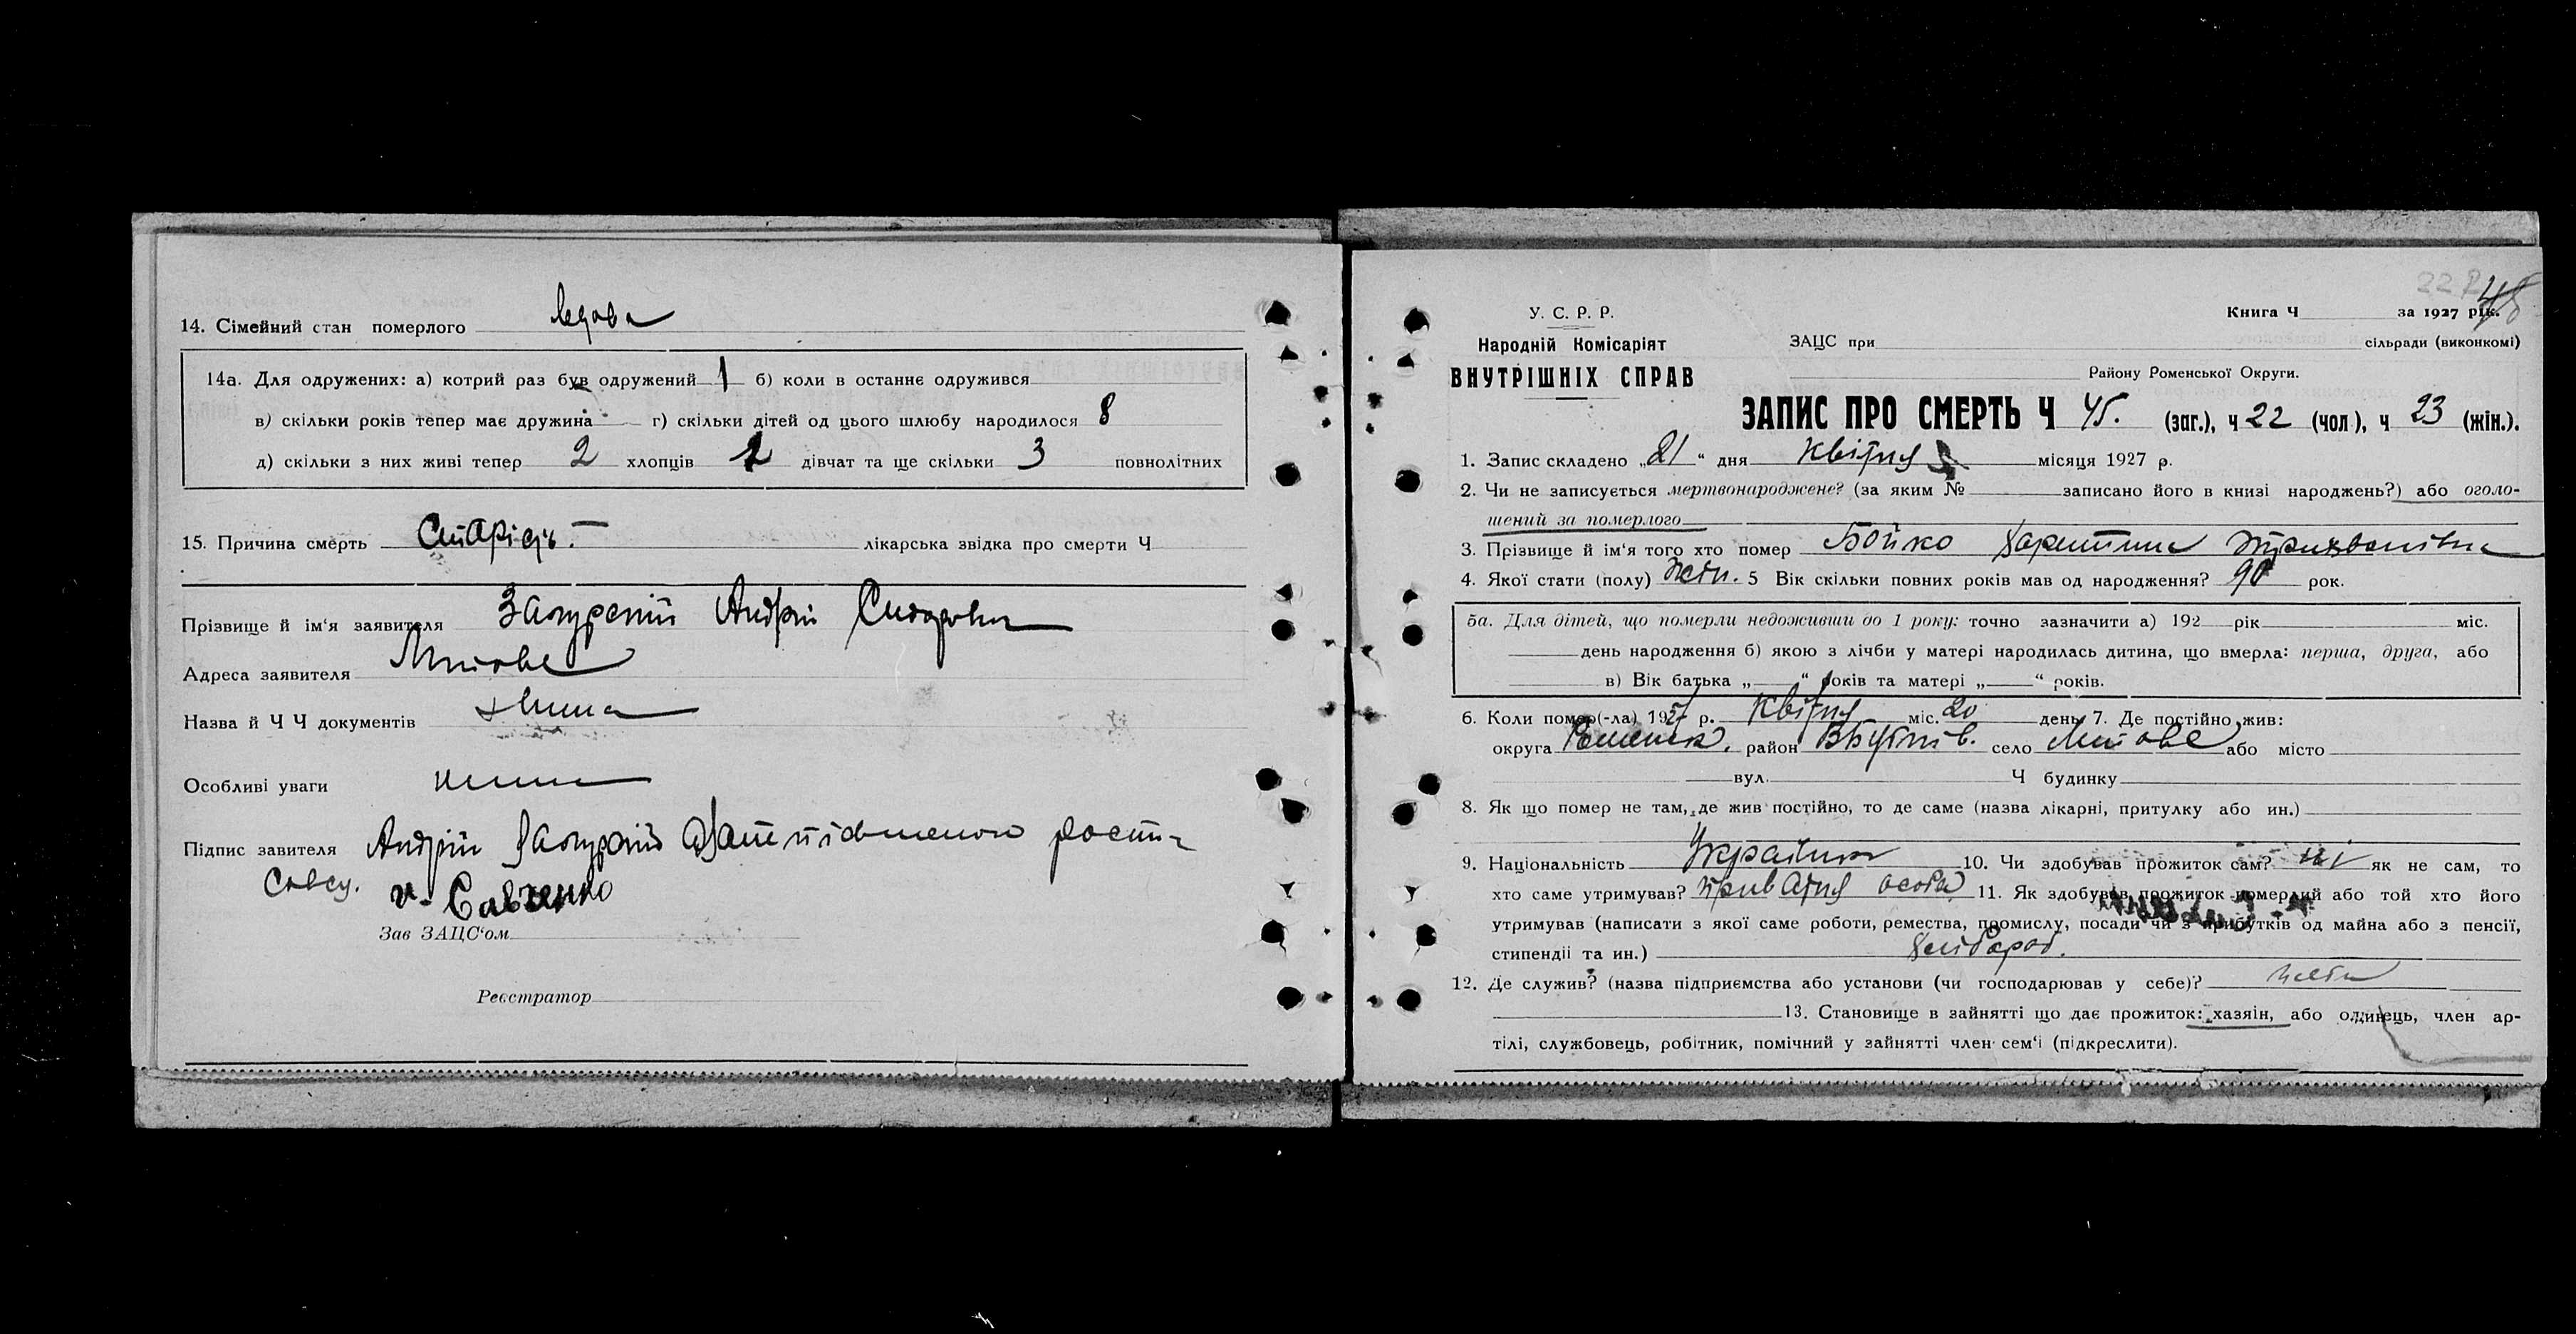 14. Сімейний стан померлого вдова
14а. Для одружених: а) котрий раз був одружений 1 б) коли в останнє одружився
в) скільки років тепер має дружина - г) скільки дітей од цього шлюбу народилося 8
д) скільки з них живі тепер 2 хлопців 1 дівчат та ще скільки 3 повнолітних
15. Причина смерть Старість. лікарська звідка про смерти Ч
Прізвище й ім'я заявителя Андрій
Адреса заявителя
Назва й Ч Ч документів
Особливі уваги нима
Підпис завителя Андрій
Савченко
Зав ЗАЦС'ом
Реєстратор
22
45
У. С. Р. Р.
Народній Комісаріят
ВНУТРІШНІХ СПРАВ
Книга Ч за 1927 рік.
ЗАЦС при сільради (виконкомі)
Району Роменської Округи.
ЗАПИС ПРО СМЕРТЬ Ч 45. (заг.), ч 22 (чол), ч 23 (жін.).
1. Запис складено „21" дня Квітня місяця 1927 р.
2. Чи не записується мертвонароджене? (за яким № записано його в книзі народжень?) або оголо-
шений за померлого
3. Прізвище й ім'я того хто помер Бойко
4. Якої стати (полу) Жін. 5 Вік скільки повних років мав од народження? 90 рок.
5а. Для дітей, що померли недоживши до 1 року: точно зазначити а) 192 рік міс.
день народження б) якою з лічби у матері народилась дитина, що вмерла: перша, друга, або
в) Вік батька „ " років та матері „ " років.
6. Коли помер(-ла) 1927 р. Квітня міс. 20 день 7. Де постійно жив:
округа Роменськ. район село або місто
вул. Ч будинку
8. Як що помер не там, де жив постійно, то де саме (назва лікарні, притулку або ин.)
9. Національність Українка 10. Чи здобував прожиток сам? ні як не сам, то
хто саме утримував? приватня особа 11. Як здобував прожиток померлий або той хто його
утримував (написати з якої саме роботи, ремества, промислу, посади чи з прибутків од майна або з пенсії,
стипендії та ин.) хлібороб.
12. Де служив? (назва підприємства або установи (чи господарював у себе)?
13. Становище в зайнятті що дає прожиток: хазяїн, або одинець, член ар-
тілі, службовець, робітник, помічний у зайнятті член сем'ї (підкреслити).